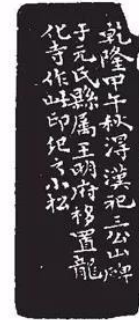 乾隆甲午秋浮漢祀三公山碑
于元氏縣属王明府移置龍
化寺作此印纪之小松